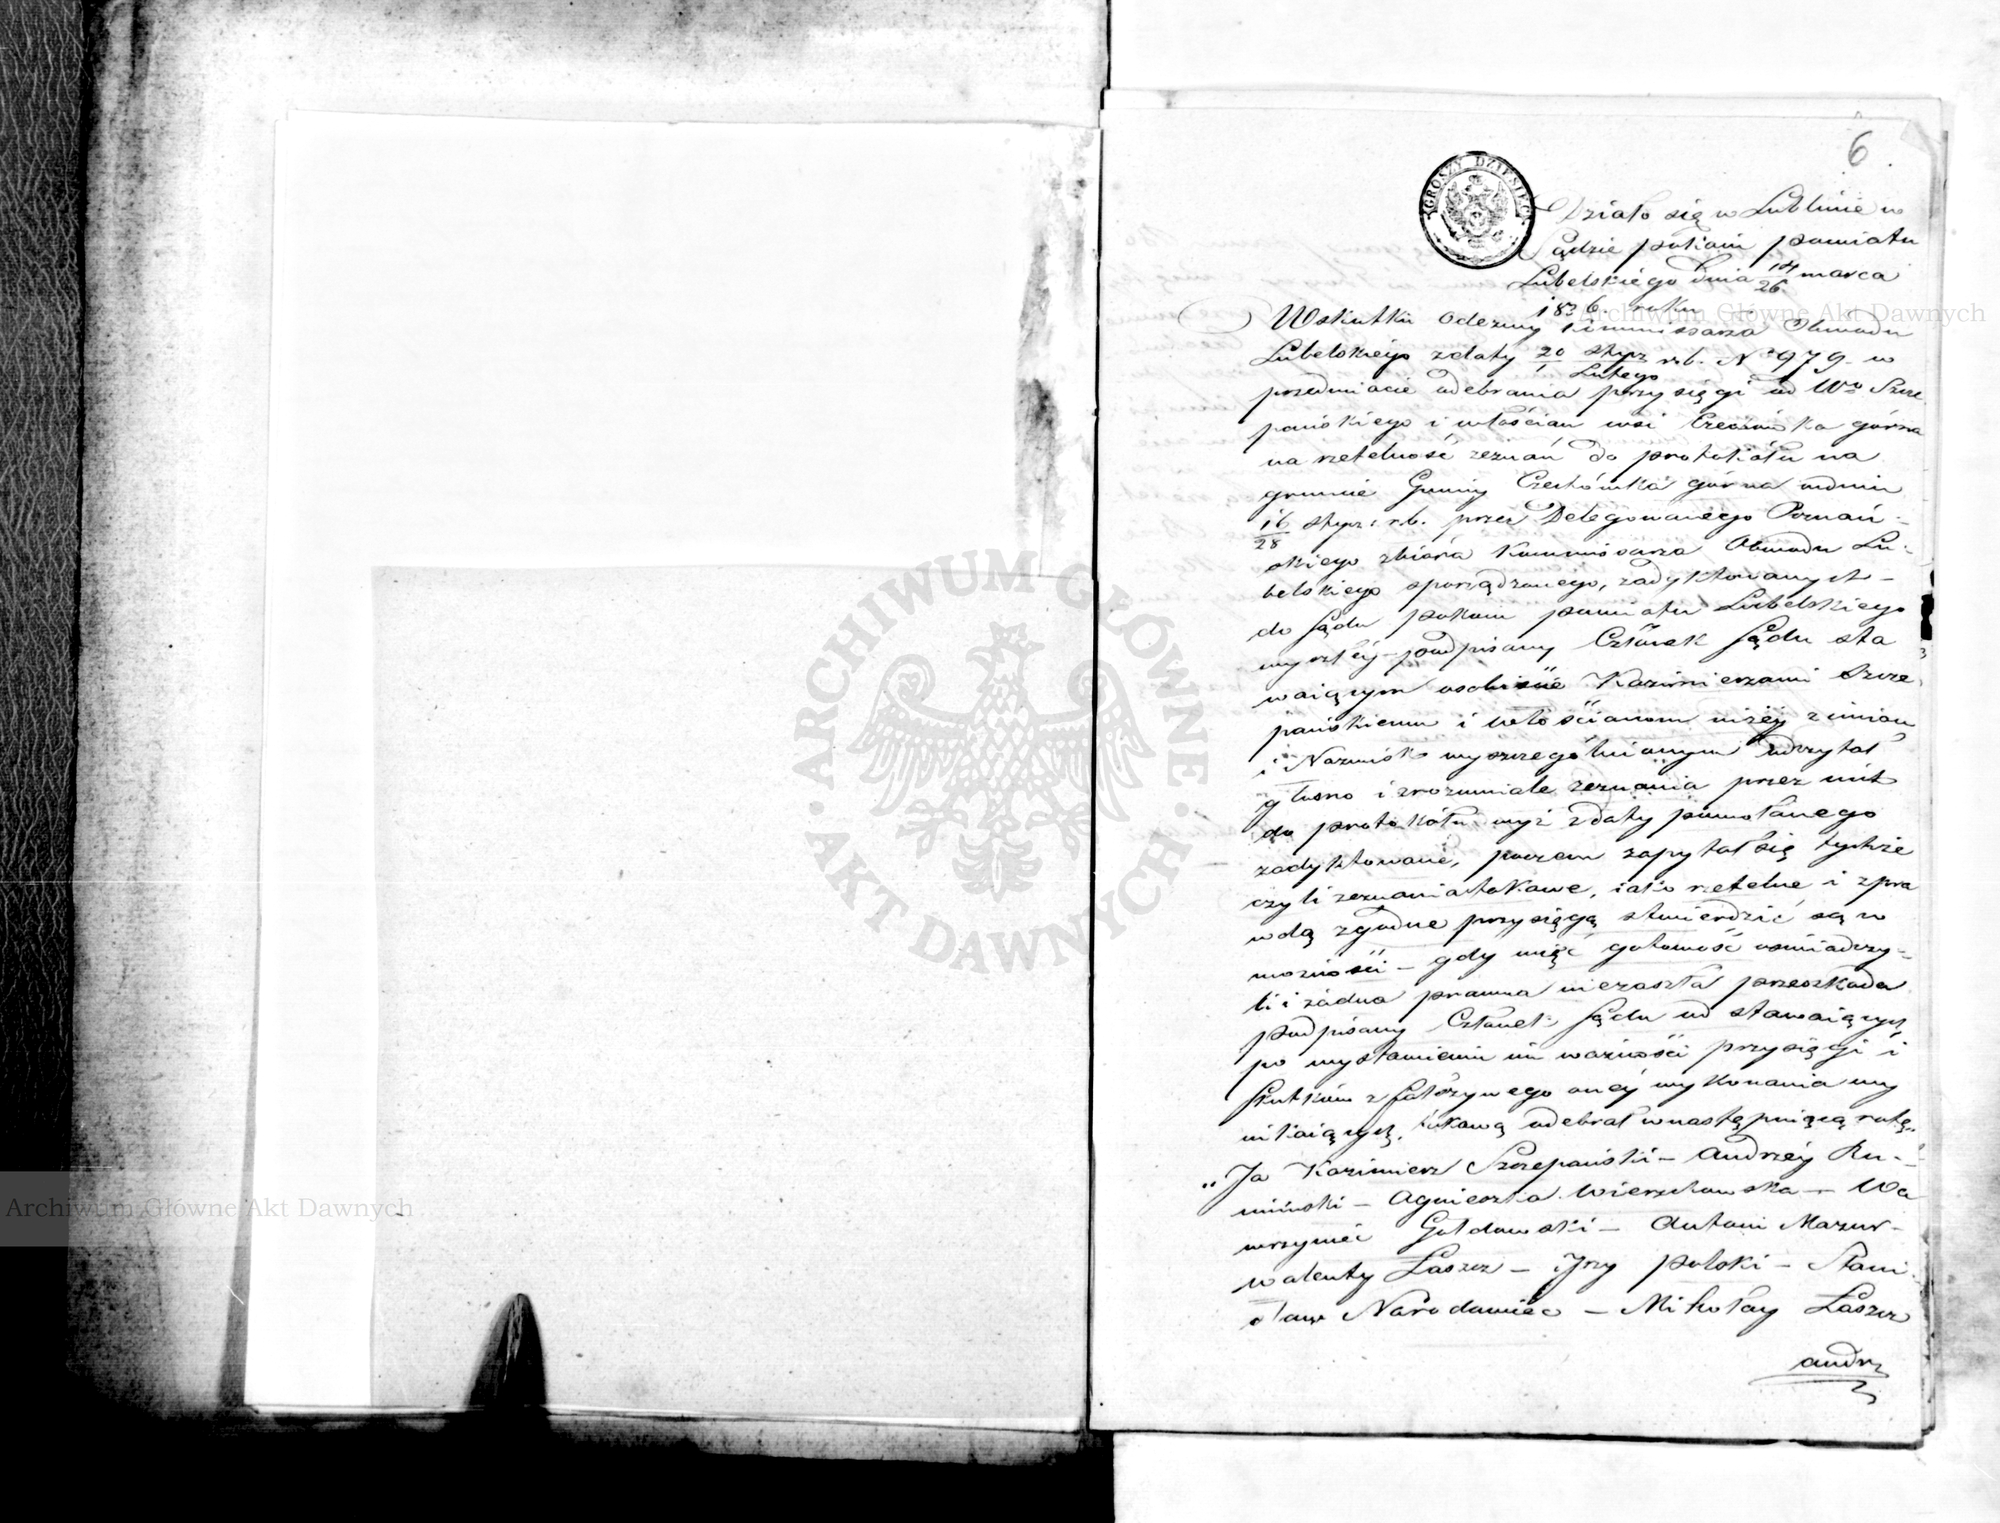 6.
GROSZY DZIESIĘĆ
Działo się w Lublinie w
Sądzie pokoiu powiatu
Lubelskiego dnia 14/26 marca
1836. roku
Wskutku Odezwy Kommissarza Obwodu
Lubelskiego zdaty 20 stycz/1 Lutego rb. No 979. w
przedmiocie odebrania przysięgi od Wo Szcze
pańskiego i włościan wsi Czechówka górna
na rzetelność zeznań do protokółu na
gruncie Gminy Czechówka górna wdniu
16/28 stycz: r.b. przez Delegowanego Poznań-
skiego zbióra Kommissarza Obwodu Lu-
belskiego sporządzonego, zadyktowanych-
do Sądu pokoiu powiatu Lubelskiego
wyszłéy-podpisany Członek Sądu sta
waiącym osobiscie Kazimierzowi Szcze
pańskiemu i włościanom niżéy z imion
i Nazwisk wyszczególnionym odczytał
głosno i zrozumiale zeznania przez nich
do protokółu wyż zdaty powołanego
zadyktowane, poczem zapytał się tychże
czyli zeznania takowe, iako rzetelne i zpra
wdą zgodne przysięgą stwierdzić są w
możności - gdy więc gotowość oświadczy-
li i żadna prawna niezaszła przeszkoda
podpisany Członek Sądu od stawaiących
po wystawieniu im ważności przysięgi i
skutków z fałszywego onéy wykonania wy
nikaiących, takową odebrał wnastępuiącą rotę„
„Ja Kazimierz Szczepański - Andrzéy Ru-
miński - Agnieszka Wierzchowska - Wa
wrzyniec Gołdowski - Antoni Mazur-
walenty Łaszcz - Jzy polski - Stani
sław Narodowiec - Mikołay Łaszcz
andrz
ARCHIWUM GŁÓWNE
AKT DAWNYCH
Archiwum Główne Akt Dawnych
Archiwum Główne Akt Dawnych